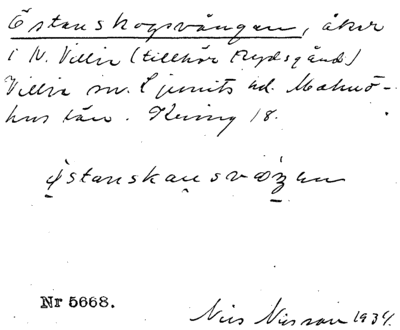 Östanskogsvången, åker
i N. Villie (tillhör Rydsgård)
Villie sn. Ljunits hd. Malmö-
hus län. Kiving 18.
östanskansvæŋen
Nr 5668.
Nils Nilsson 1934.